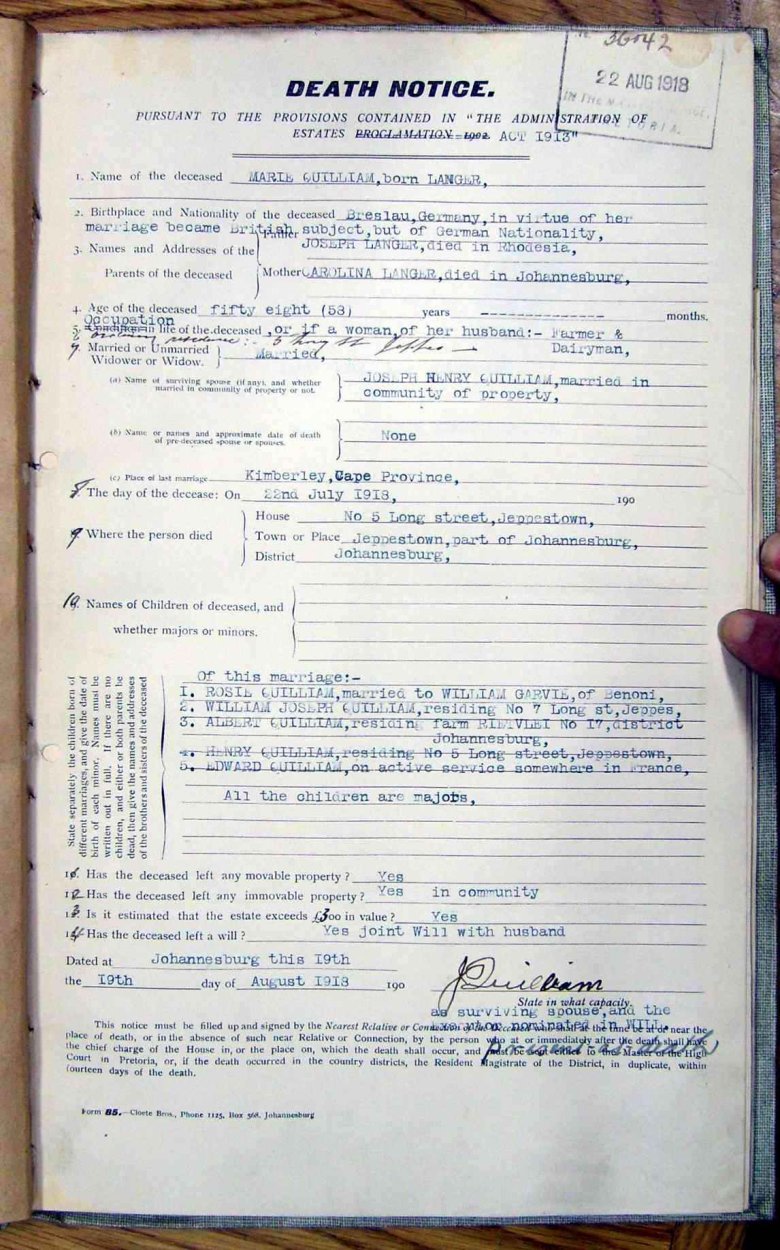 36042
22 AUG 1918
IN THE
DEATH NOTICE.
PURSUANT TO THE PROVISIONS CONTAINED IN "THE ADMINISTRATION OF
ESTATES PROCLAMATION 1902 ACT 1913"
1. Name of the deceased MARIE QUILLIAM, born LANGER,
2. Birthplace and Nationality of the deceased Breslau, Germany, in virtue of her
marriage became British subject, but of German Nationality,
3. Names and Addresses of the Father JOSEPH LANGER, died in Rhodesia,
Parents of the deceased Mother CAROLINA LANGER, died in Johannesburg,
4. Age of the deceased fifty eight (58) years -------------- months.
Occupation
5. Condition in life of the deceased, or if a woman, of her husband:- Farmer &
Dairyman,
6 ordinary residence :- 5 Long St Jeppes
7. Married or Unmarried Married,
Widower or Widow.
(a) Name of surviving spouse (if any), and whether JOSEPH HENRY QUILLIAM, married in
married in community of property or not. community of property,
(b) Name or names and approximate date of death None
of pre-deceased spouse or spouses.
(c) Place of last marriage Kimberley, Cape Province,
8. The day of the decease: On 22nd July 1918, 190
House No 5 Long street, Jeppestown,
9. Where the person died Town or Place Jeppestown, part of Johannesburg,
District Johannesburg,
10. Names of Children of deceased, and
whether majors or minors.
State separately the children born of
different marriages, and give the date of
birth of each minor. Names must be
written out in full. If there are no
children, and either or both parents be
dead, then give the names and addresses
of the brothers and sisters of the deceased
Of this marriage:-
1. ROSIE QUILLIAM, married to WILLIAM GARVIE, of Benoni,
2. WILLIAM JOSEPH QUILLIAM, residing No 7 Long st, Jeppes,
3. ALBERT QUILLIAM, residing farm RIETVLEI No 17, district
Johannesburg,
4. HENRY QUILLIAM, residing No 5 Long street, Jeppestown,
5. EDWARD QUILLIAM, on active service somewhere in France,
All the children are majors,
11. Has the deceased left any movable property? Yes
12. Has the deceased left any immovable property? Yes in community
13. Is it estimated that the estate exceeds £300 in value? Yes
14. Has the deceased left a will? Yes joint Will with husband
Dated at Johannesburg this 19th
the 19th day of August 1918 190
J Quilliam
State in what capacity.
as surviving spouse, and the
executor nominated in WILL.
present at death
This notice must be filled up and signed by the Nearest Relative or Connection of the Deceased who shall at the time be at or near the
place of death, or in the absence of such near Relative or Connection, by the person who at or immediately after the death shall have
the chief charge of the House in, or the place on, which the death shall occur, and must be sent either to the Master of the High
Court in Pretoria, or, if the death occurred in the country districts, the Resident Magistrate of the District, in duplicate, within
fourteen days of the death.
Form 85.—Cloete Bros., Phone 1125, Box 568, Johannesburg